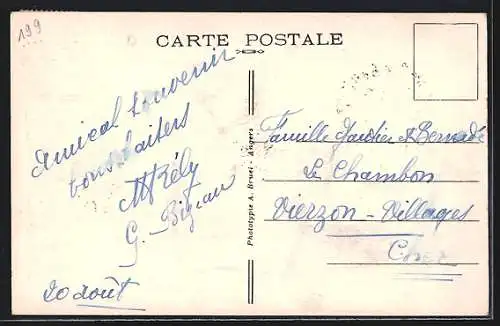 199
CARTE POSTALE
Amical souvenir
bons baisers
G.
20 août
Phototypie A. Bruel - Angers
Famille Gautier &
Le Chambon
Vierzon-Villages
Cher